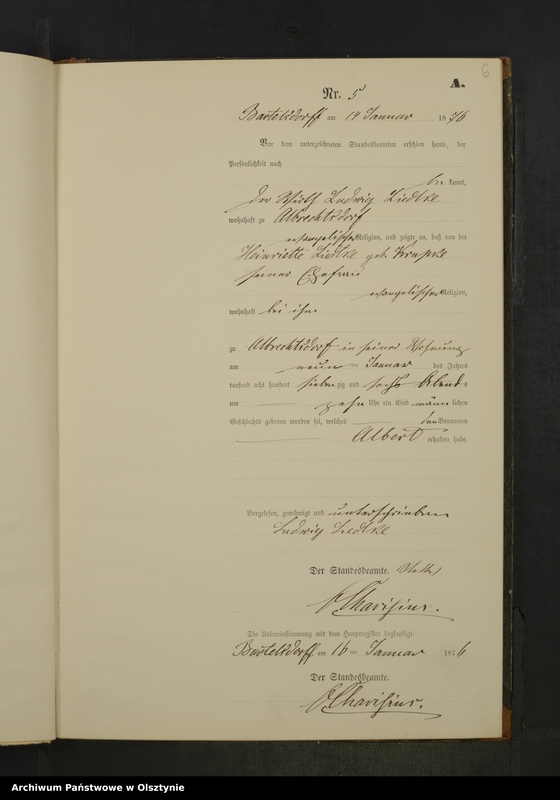 6
A.
Nr. 5
Bartelsdorff am 14 Januar 1876
Vor dem unterzeichneten Standesbeamten erschien heute, der
Persönlichkeit nach
be kannt,
der Wirth Ludwig Liedtke
wohnhaft zu Albrechtsdorf
evangelischer Religion, und zeigte an, daß von der
Heinriette Liedtke geb.
seiner Ehefrau
evangelischer Religion,
wohnhaft bei ihm
zu Albrechtsdorf in seiner Wohnung
am neun ten Januar des Jahres
tausend acht hundert sieben zig und sechs Abends
um zehn Uhr ein Kind männ lichen
Geschlechts geboren worden sei, welches den Vornamen
Albert erhalten habe.
Vorgelesen, genehmigt und unterschrieben
Ludwig Liedtke
Der Standesbeamte.
Die Uebereinstimmung mit dem Hauptregister beglaubigt.
Bartelsdorff am 16 ten Januar 1876
Der Standesbeamte.
Archiwum Państwowe w Olsztynie